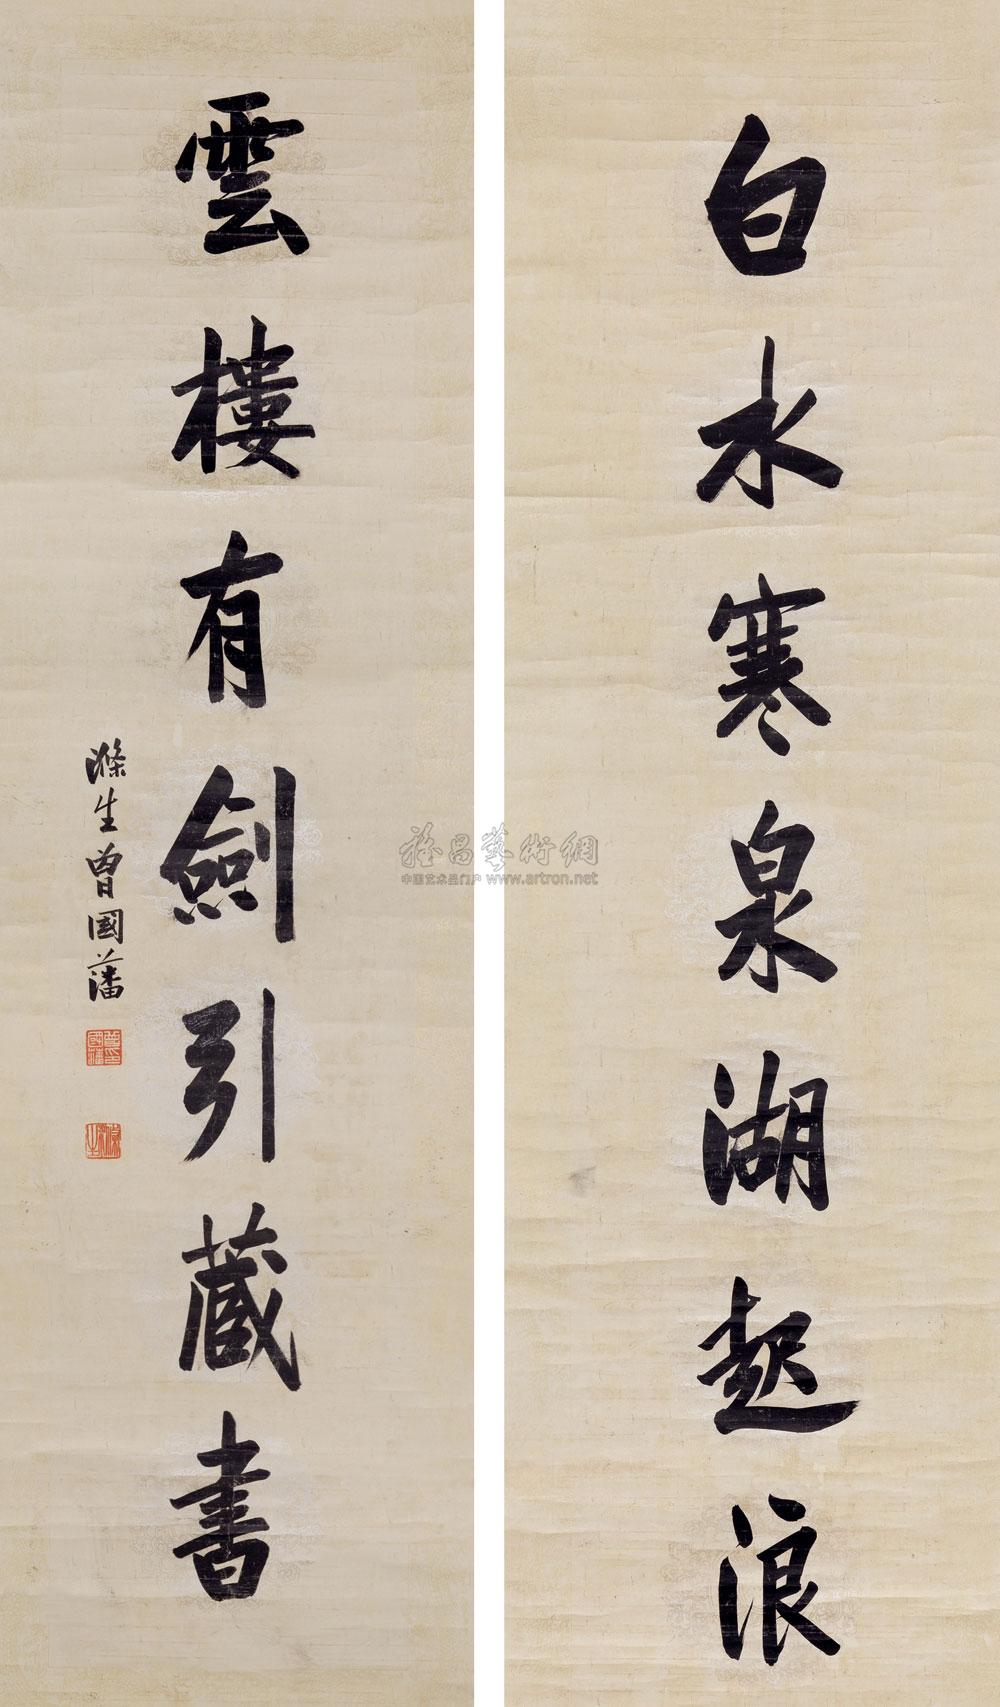 白水寒泉湖起浪
雲樓有劍引藏書
滌生曾國藩
曾印國藩
滌生
雅昌藝術網
中国艺术品门户 www.artron.net